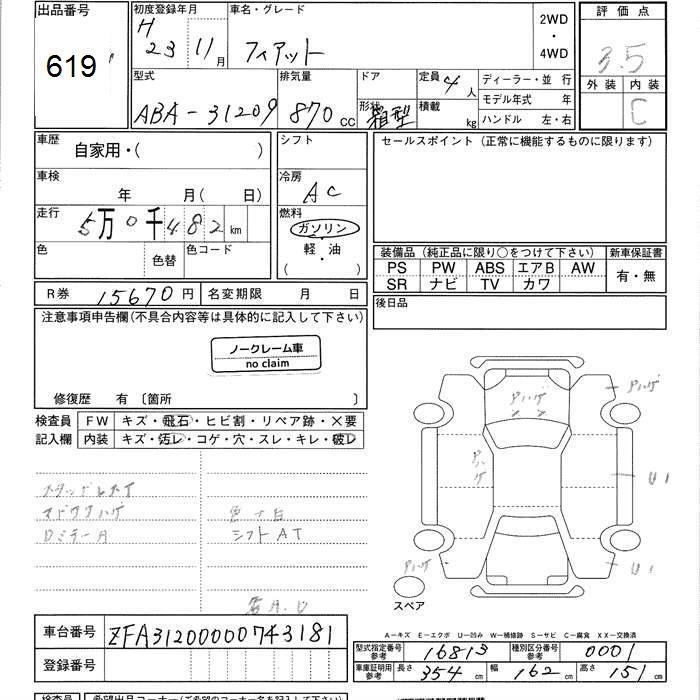 出品番号 初度登録年月 車名・グレード 評価点
619 H 23 11月 フィアット 2WD・4WD 3.5
型式 排気量 ドア 定員 4人 ディーラー・並行 外装 内装
ABA-31209 870cc 形状 箱型 積載 kg モデル年式 年 C
ハンドル 左・右
車歴 シフト セールスポイント (正常に機能するものに限ります)
自家用・( )
車検 冷房
年 月( 日) AC
走行 5万0千482km 燃料
ガソリン
色 色替 色コード 軽・油
( ・ )
装備品 (純正品に限り○をつけて下さい) 新車保証書
PS PW ABS エアB AW 有・無
SR ナビ TV カワ
R券 15670円 名変期限 月 日 後日品
注意事項申告欄(不具合内容等は具体的に記入して下さい)
ノークレーム車
no claim
修復歴 有 〔箇所 〕
検査員 FW キズ・飛石・ヒビ割・リペア跡・×要
記入欄 内装 キズ・汚レ・コゲ・穴・スレ・キレ・破レ
Pハゲ
Pハゲ
Pハゲ
U1
スタッドレスタイ
マドワクハゲ 色ナ白
ロミラーA シフトAT
Pハゲ U1
スペア
A-キズ E-エクボ U-凹み W-補修跡 S-サビ C-腐食 XX-交換済
車台番号 ZFA31200000743181
型式指定番号 参考 16813 種別区分番号 参考 0001
登録番号 車庫証明用 参考 長さ 354cm 幅 162cm 高さ 151cm